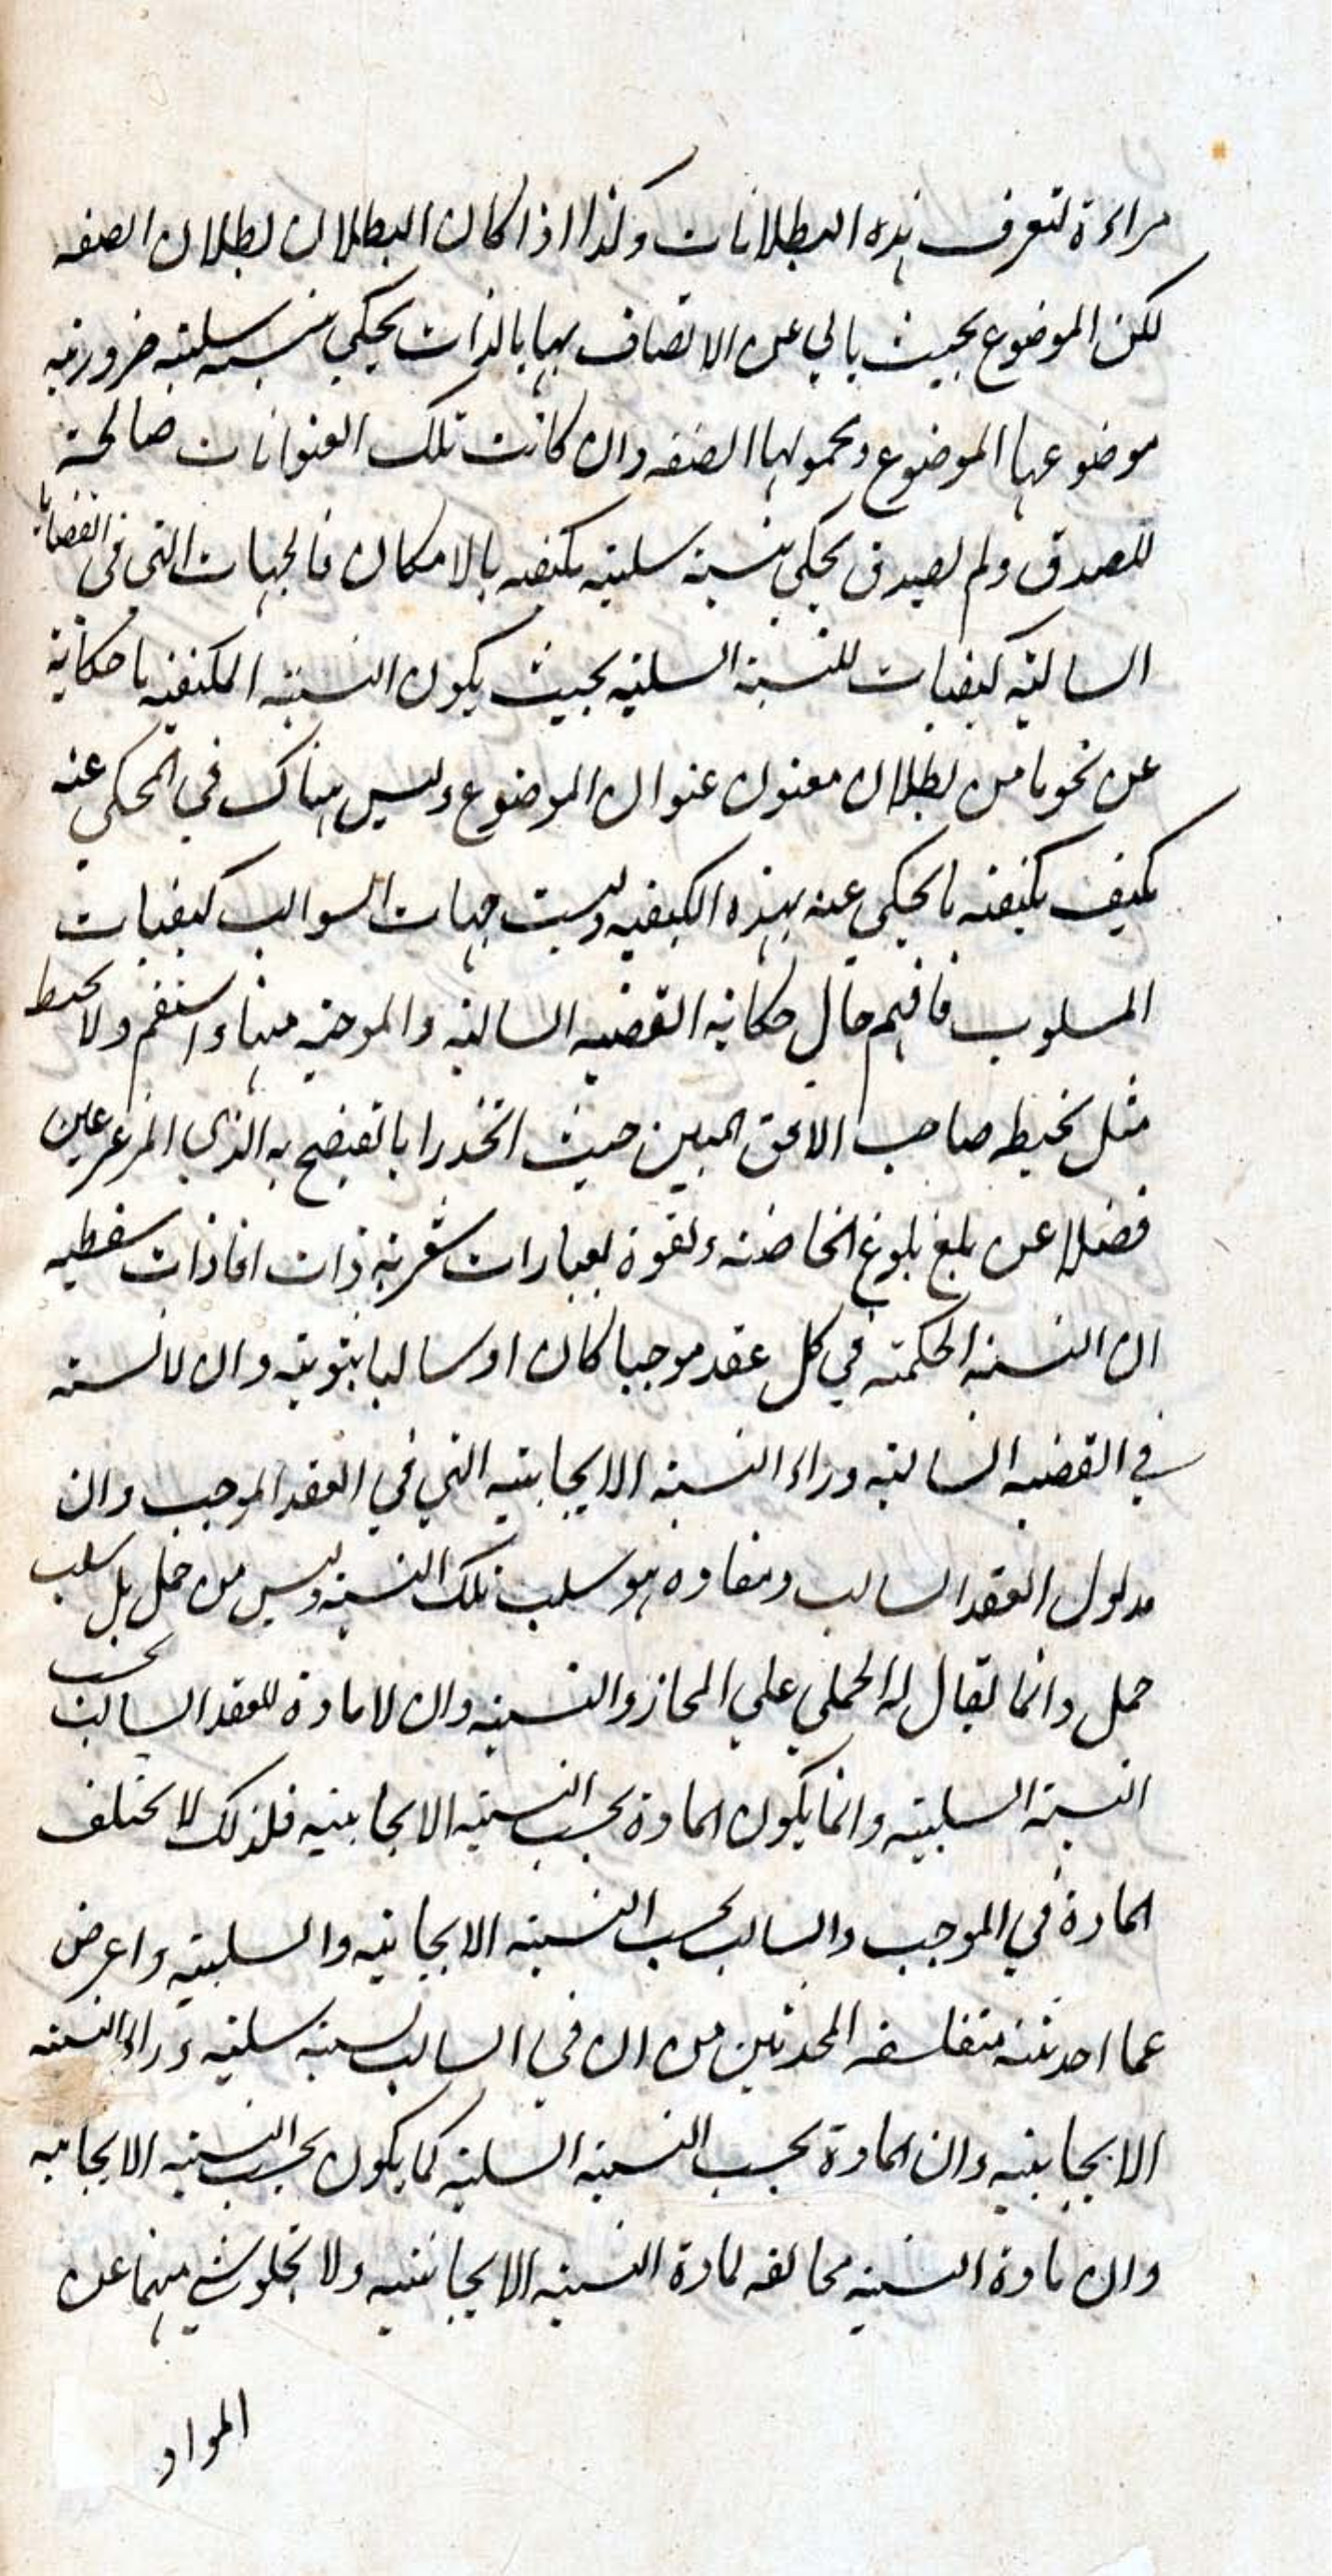 مراءة لتعرف هذه البطلانات وكذا اذا كان البطلان لبطلان الصفه
لكن الموضوع بحيث يابي عن الاتصاف بها بالذات يحكي بنسبه سلبيه ضروريه
موضوعها الموضوع ومحمولها الصفه وان كانت تلك العنوانات صالحة
للصدق ولم يصدق يحكي بنسبة سلبيه مكيفه بالامكان فالجهات التي في القضايا
السالبه كيفيات للنسبة السلبيه بحيث يكون النسبه المكيفه بها حكاية
عن نحو ما من بطلان معنون عنوان الموضوع وليس هناك في المحكي عنه
مكيف بكيفيه ما يحكي عنه بهذه الكيفيه وليست جهات السوالب كيفيات
المسلوب فافهم حال حكاية القضيه السالبه والموجبه منها واستقم ولا تخبط
مثل تخبط صاحب الافق المبين حيث اتخذ رايا تفتضح به الذي المترعرعين
فضلا عن بلغ بلوغ وتفوه بعبارات شعريه ذات افادات سفطيه
ان النسبة الحكميه في كل عقد موجبا كان او سالبا ثبوتيه وان لا نسبه
في القضيه السالبه وراء النسبه الايجابيه التي في العقد الموجب وان
مدلول العقد السالب ومفاده هو سلب تلك النسبه وليس من حمل بل سلب
حمل وانما يقال له الحملي علي المجاز والنسبيه وان لا مادة للعقد السالب بحسب
النسبة السلبيه وانما يكون المادة بحسب النسبه الايجابيه فلذلك لا يختلف
المادة في الموجب والسالب بحسب النسبه الايجابيه والسلبيه واعرض
عما احدثته متفلسفه المحدثين من ان في السالب نسبة سلبيه وراء النسبه
الايجابيه وان المادة بحسب النسبة السلبيه كما يكون بحسب النسبه الايجابيه
وان مادة النسبه مخالفه لمادة النسبه الايجابيه ولا يخلو شي منهما عن
المواد